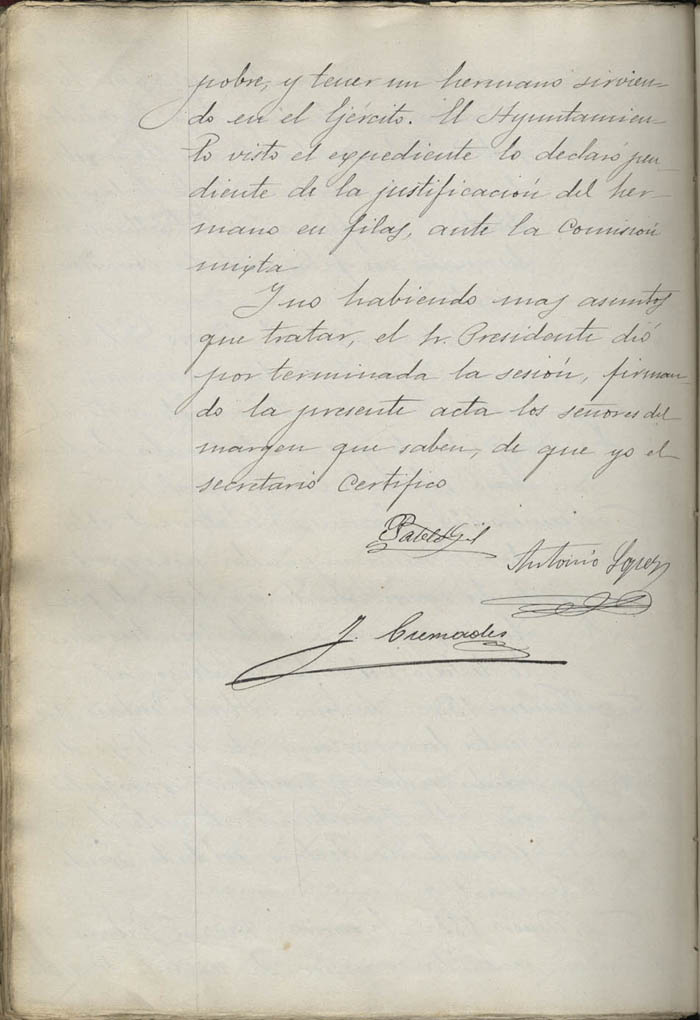 pobre, y tener un hermano sirvien-
do en el Ejército. El Ayuntamien-
to visto el expediente lo declaró pen-
diente de la justificación del her-
mano en filas, ante la Comisión
mixta
Y no habiendo mas asuntos
que tratar, el Sr. Presidente dió
por terminada la sesión, firman
do la presente acta los señores del
margen que saben, de que yo el
secretario Certifico
Gil
Antonio Lopez
J. Cremades